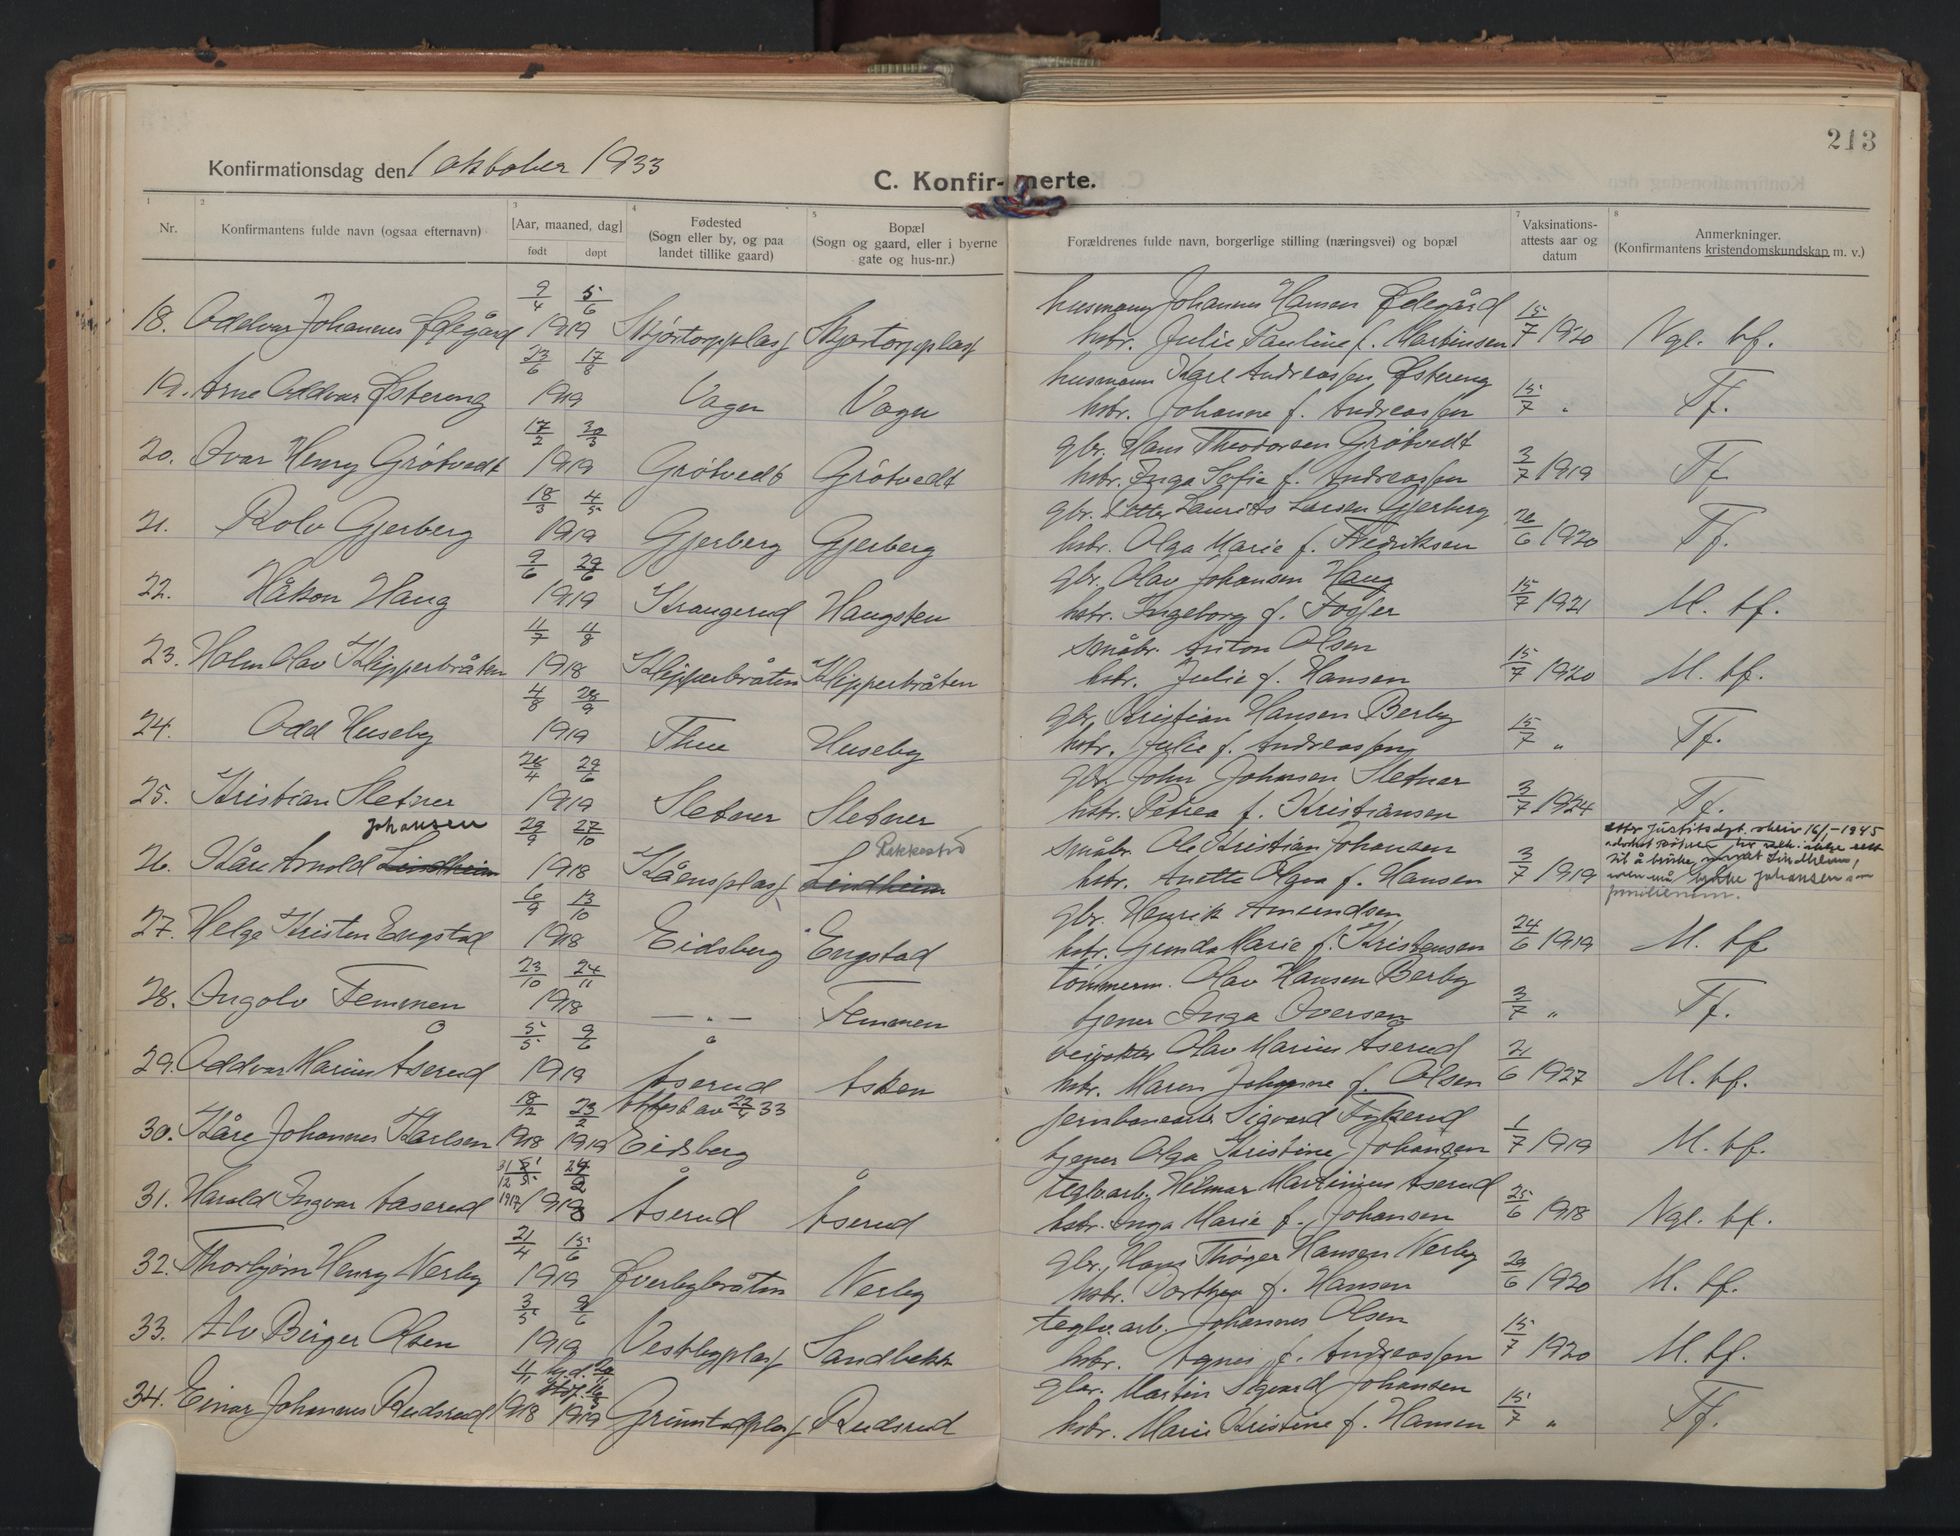 213
Konfirmationsdag den 1 oktober 1933
C. Konfir- merte.
1 2 3 4 5 7 8
Nr.
Konfirmantens fulde navn (ogsaa efternavn)
[Aar, maaned, dag]
født døpt
Fødested
(Sogn eller by, og paa
landet tillike gaard)
Bopæl
(Sogn og gaard, eller i byerne
gate og hus-nr.)
Forældrenes fulde navn, borgerlige stilling (næringsvei) og bopæl
Vaksinations-
attests aar og
datum
Anmerkninger.
(Konfirmantens kristendomskundskap m. v.)
9/4 5/6 husmann Johannes Hansen Ødegård 15/7 1920
18. Oddvar Johannes Ødegård 1919 Skjørtorpplass Skjørtorpplass hstr. Julie Pauline f. Martinsen Ngl. tf.
23/6 17/8 husmann Karl Andreassen Østereng
19. Arne Oddvar Østereng 1919 Vagn Vagn hstr. Johanne f. Andreassen 15/7 " Tf.
17/2 30/3 gbr. Hans Theodorsen Grötvedt
20. Ivar Henry Grötvedt 1919 Grötvedt Grötvedt hstr. Inga Sofie f. Andreassen 3/7 1919 Tf.
18/3 4/5 gbr. Petter Laurits Larsen Gjerberg
21. Rolv Gjerberg 1919 Gjerberg Gjerberg hstr. Olga Marie f. Fredriksen 26/6 1920 Tf.
9/6 29/6 gbr. Olav Johansen Haug
22. Håkon Haug 1919 Krangerud Haugsten hstr. Ingeborg f. Fosser 15/7 1921 M. tf.
4/7 4/8 småbr. Anton Olsen
23. Holm Olav Klipperbråten 1918 Klipperbråten Klipperbråten hstr. Julie f. Hansen 15/7 1920 M. tf.
4/8 28/9 gbr. Kristian Hansen Berby
24. Odd Huseby 1919 Thue Huseby hstr. Julie f. Andreassen 15/7 " Tf.
28/4 29/6 gbr. John Johansen Sletner
25. Kristian Sletner 1919 Sletner Sletner hstr. Petrea f. Kristiansen 3/7 1924 Tf.
Johansen 29/9 27/10 Rakkestad småbr. Ole Kristian Johansen etter Justitsdpt. skriv 16/1-1945
26. Kåre Arnold Lindheim 1918 Kåensplass Lindheim hstr. Anette Olga f. Hansen 3/7 1919
til å bruke navnet Lindheim,
men må bruke Johansen som
familienavn.
6/9 13/10 gbr. Henrik Amundsen
27. Helge Kristen Engstad 1918 Eidsberg Engstad hstr. Gunda Marie f. Kristensen 24/6 1919 M. tf
23/10 24/11 tømmerm. Olav Hansen Berby
28. Ingolv Temmen 1918 — " — Temmen tjener Inga Iversen 3/7 " Tf.
5/5 9/6 veivokter Olav Marius Åserud
29. Oddvar Marius Åserud 1919 Åserud Asken hstr. Maren Johanne f. Olsen 21/6 1927 M. tf.
18/12 23/2 Attest av 22/4 33 jernbanearb. Sigvard Fykerud
30. Kåre Johannes Karlsen 1918 1919 Eidsberg tjener Olga Kristine Johansen 1/7 1919 M. tf.
31/12 24/2 teglv.arb. Helmar Martinius Åserud
31. Harald Ingvar Aaserud 1917 1918 Åserud Åserud hstr. Inga Marie f. Johansen 25/6 1918 Ngl. tf.
21/4 15/6 gbr. Hans Thøger Hansen Nerby
32. Thorbjørn Henry Nerby 1919 Øverbybråten Nerby hstr. Dorthea f. Hansen 29/6 1920 M. tf.
3/5 9/6 teglv.arb. Johannes Olsen
33. Alv Birger Olsen 1919 Vestbyplass Sandbekk hstr. Agnes f. Andreassen 15/7 1920 M. tf.
4/11 hj.d. gbr. Martin Sigvard Johansen
34. Einar Johannes Rudsrud 1918 1919 Grimstadplass Rudsrud hstr. Marie Kristine f. Hansen 15/7 " Tf.